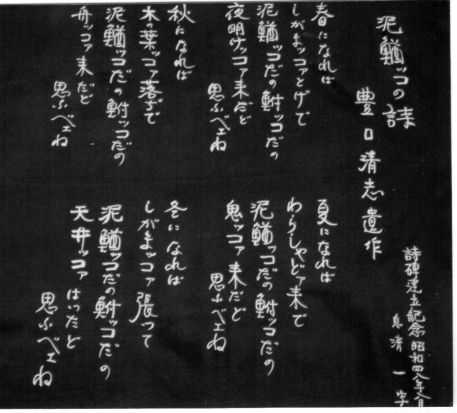 泥鰌ッコの詩
豊口清志遺作
春になれば
しがまッコァとげで
泥鰌ッコだの鮒ッコだの
夜明げッコァ来だど
思ふべェね
夏になれば
わらしゃどァ来て
泥鰌ッコだの鮒ッコだの
鬼ッコァ来だど
思ふべェね
秋になれば
木の葉ッコァ落ぢで
泥鰌ッコだの鮒ッコだの
舟ッコァ来だど
思ふべェね
冬になれば
しがまッコァ張って
泥鰌ッコだの鮒ッコだの
天井ッコァ
はったど
思ふべェね
詩碑建立記念 昭和四八年八月
息 清一